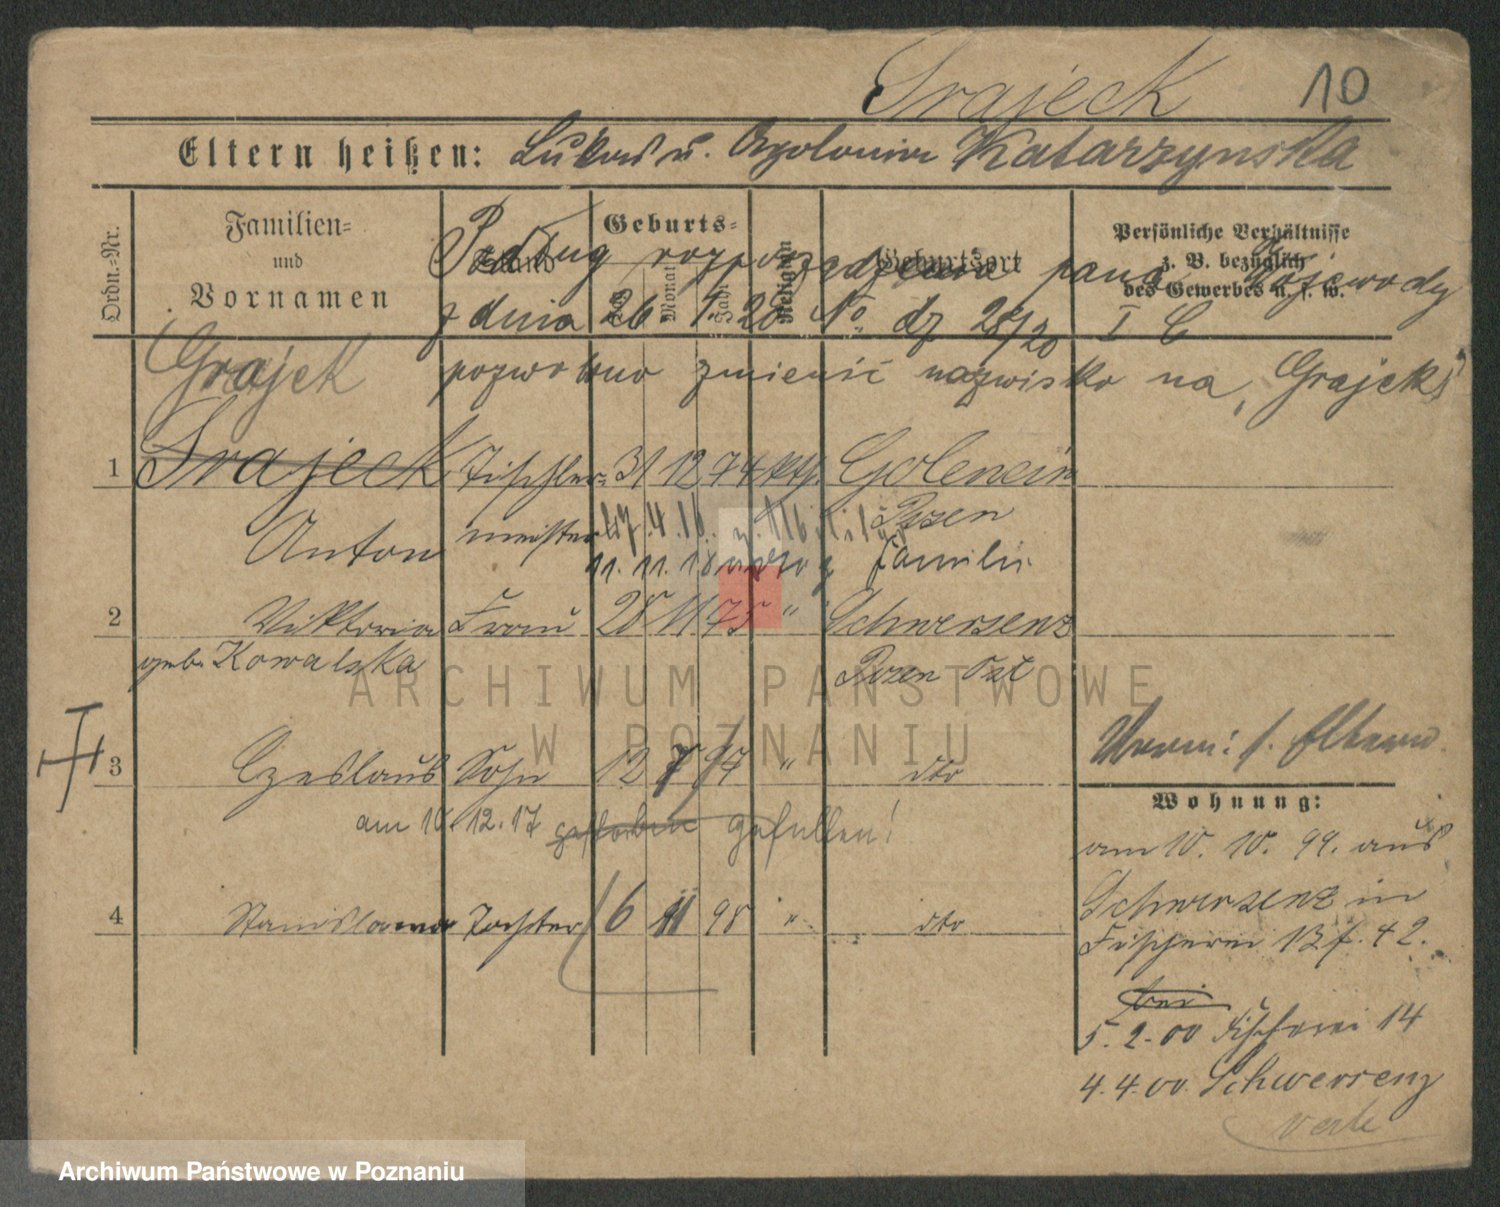 Srajeck 10
Eltern heißen: Lukas u. Apolonia Katarzynska
Ordn.=Nr.
Familien= und Vornamen
Stand
Geburts=
Tag Monat Jahr
Religion
Geburtsort
Persönliche Verhältnisse z. B. bezüglich des Gewerbes u. s. w.
Podług rozporządzenia pana Wojewody
z dnia 26 1. 20 No dz 28/20 I C
Grajek pozwolono zmienić nazwisko na „Grajek"
1 Srajeck Tischler= 31 12 74 kth. Golencin
Anton meister 4. 16. z. Militär Posen
11. 11. 18 Familie
2 Viktoria Frau 28 11 75 " Schwersenz
geb. Kowalska Posen Ost
3 Czeslaus Sohn 12 7 97 " dto
am 10. 12. 17 gestorben gefallen!
4 Stanislawa Tochter 6 11 98 " dto
Verm: s. Eltern
Wohnung:
am 10. 10. 99. aus
Schwersenz in
Fischerei 42.
bei
5. 2. 00 Fischerei 14
4. 4. 00. Schwersenz
ARCHIWUM PAŃSTWOWE
W POZNANIU
Archiwum Państwowe w Poznaniu